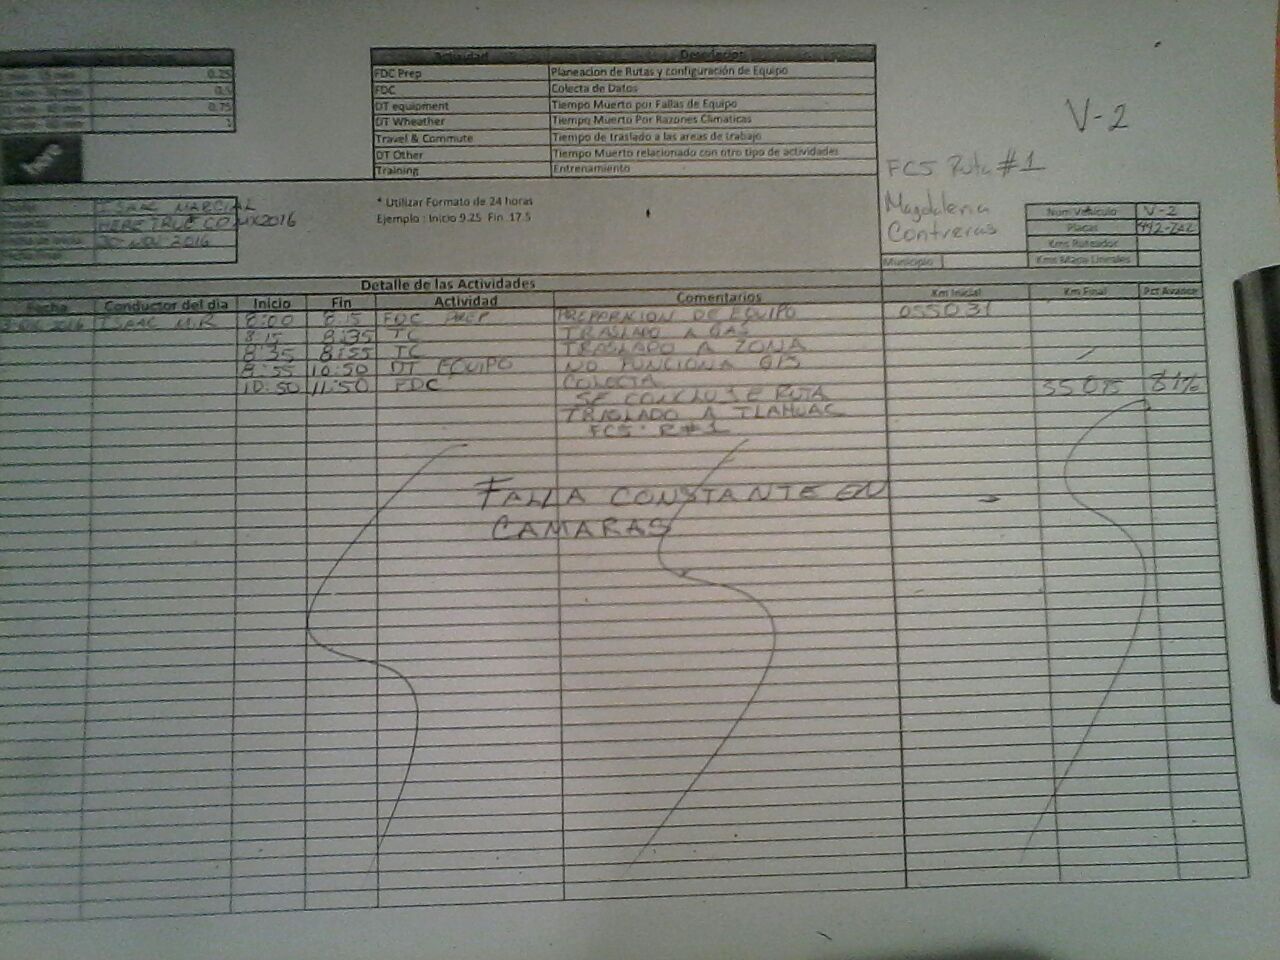 Actividad Descripcion
0.25
FDC Prep Planeacion de Rutas y configuración de Equipo
0.5
FDC Colecta de Datos
0.75
DT equipment Tiempo Muerto por Fallas de Equipo
1
DT Wheather Tiempo Muerto Por Razones Climaticas
Travel & Commute Tiempo de traslado a las areas de trabajo
DT Other Tiempo Muerto relacionado con otro tipo de actividades
Training Entrenamiento
V-2
FCS Ruta #1
Magdalena
Contreras
ISAAC MARCIAL
HERE TRUE CO MX2016
30 NOV 2016
* Utilizar Formato de 24 horas
Ejemplo : Inicio 9.25 Fin 17.5
Num Vehiculo V-2
Placas
Kms Ruteador
Municipio Kms Mapa Lineales
Detalle de las Actividades
Fecha Conductor del dia Inicio Fin Actividad Comentarios Km Inicial Km Final Pct Avance
2016 ISAAC M.R 8:00 8:15 FDC PREP PREPARACION DE EQUIPO 055031
8:15 8:35 TC TRASLADO A GAS
8:35 8:55 TC TRASLADO A ZONA
8:55 10:50 DT EQUIPO NO FUNCIONA GIS
10:50 11:50 FDC COLECTA 35075 81%
SE CONCLUYE RUTA
TRASLADO A TLAHUAC
FCS R#1
FALLA CONSTANTE EN
CAMARAS